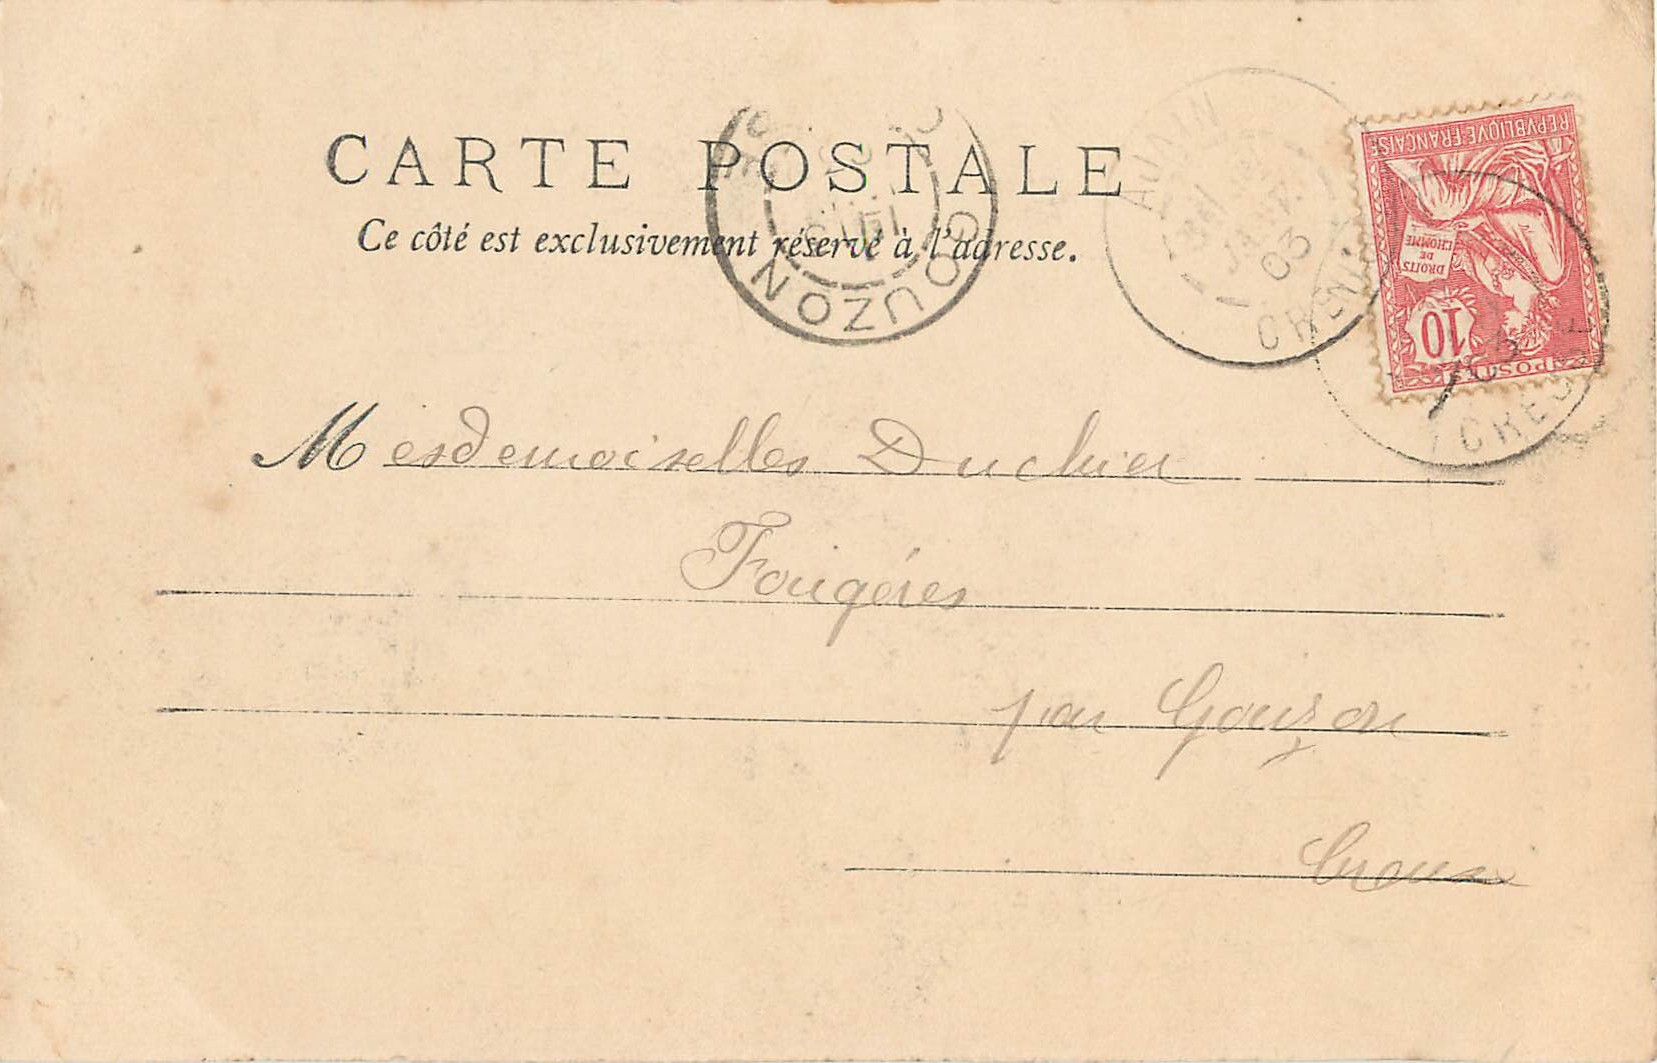 CARTE POSTALE
Ce côté est exclusivement réservé à l'adresse.
GOUZON
JANV.
03
CREUSE
REPVBLIQVE FRANÇAISE
DROITS
DE
L'HOMME
10
POSTES
Mesdemoiselles Duchier
Fougéres
par Gouzon
Creuse